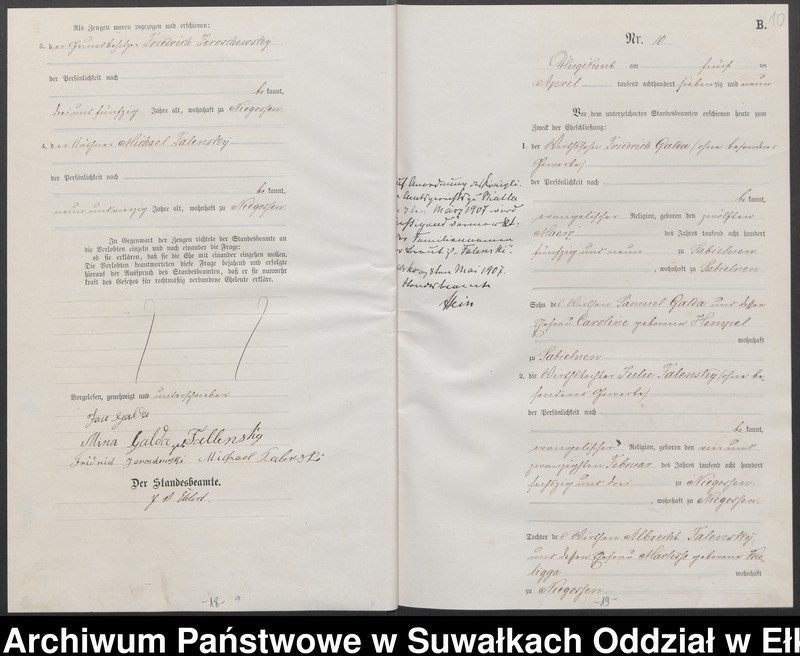 Als Zeugen waren zugezogen und erschienen:
3. der Grundbesitzer Friedrich Jeroschewsky
der Persönlichkeit nach
be kannt,
drei und fünfzig Jahre alt, wohnhaft zu Niegossen
4. der Käthner Michael Talensky
der Persönlichkeit nach
be kannt,
neun und vierzig Jahre alt, wohnhaft zu Niegossen
In Gegenwart der Zeugen richtete der Standesbeamte an
die Verlobten einzeln und nach einander die Frage:
ob sie erklären, daß sie die Ehe mit einander eingehen wollen.
Die Verlobten beantworteten diese Frage bejahend und erfolgte
hierauf der Ausspruch des Standesbeamten, daß er sie nunmehr
kraft des Gesetzes für rechtmäßig verbundene Eheleute erkläre.
Vorgelesen, genehmigt und unterschrieben
Galda
Mina Galda Tallensky
Fridrich Michael Talenski
Der Standesbeamte.
J. V. Ehlert.
-18-
Anordnung des Königli.
Amtsgerichts zu Bialla
März 1907 wird
der Familienname
Braut ist Talenski.
den Mai 1907.
Standesbeamte
Stein
B. 10
Nr. 10
am fünf ten
April tausend achthundert siebenzig und neun
Vor dem unterzeichneten Standesbeamten erschienen heute zum
Zweck der Eheschließung:
1. der Wirthssohn Friedrich Galda (ohne besonderes
Gewerbe)
der Persönlichkeit nach
be kannt,
evangelischer Religion, geboren den zwölften
Maerz des Jahres tausend acht hundert
fünfzig und neun zu Sabielnen
, wohnhaft zu Sabielnen
Sohn des Wirthen Samuel Galda und dessen
Ehefrau Caroline geborene Hempel
wohnhaft
zu Sabielnen
2. die Wirthstochter Julie Talensky (ohne be-
sonderes Gewerbe)
der Persönlichkeit nach
be kannt,
evangelischer Religion, geboren den ein und
zwanzigsten Februar des Jahres tausend acht hundert
sechszig und drei zu Niegossen
, wohnhaft zu Niegossen
Tochter des Wirthen Albrecht Talensky
und dessen Ehefrau geborene
wohnhaft
zu Niegossen
-19-
Archiwum Państwowe w Suwałkach Oddział w Eł